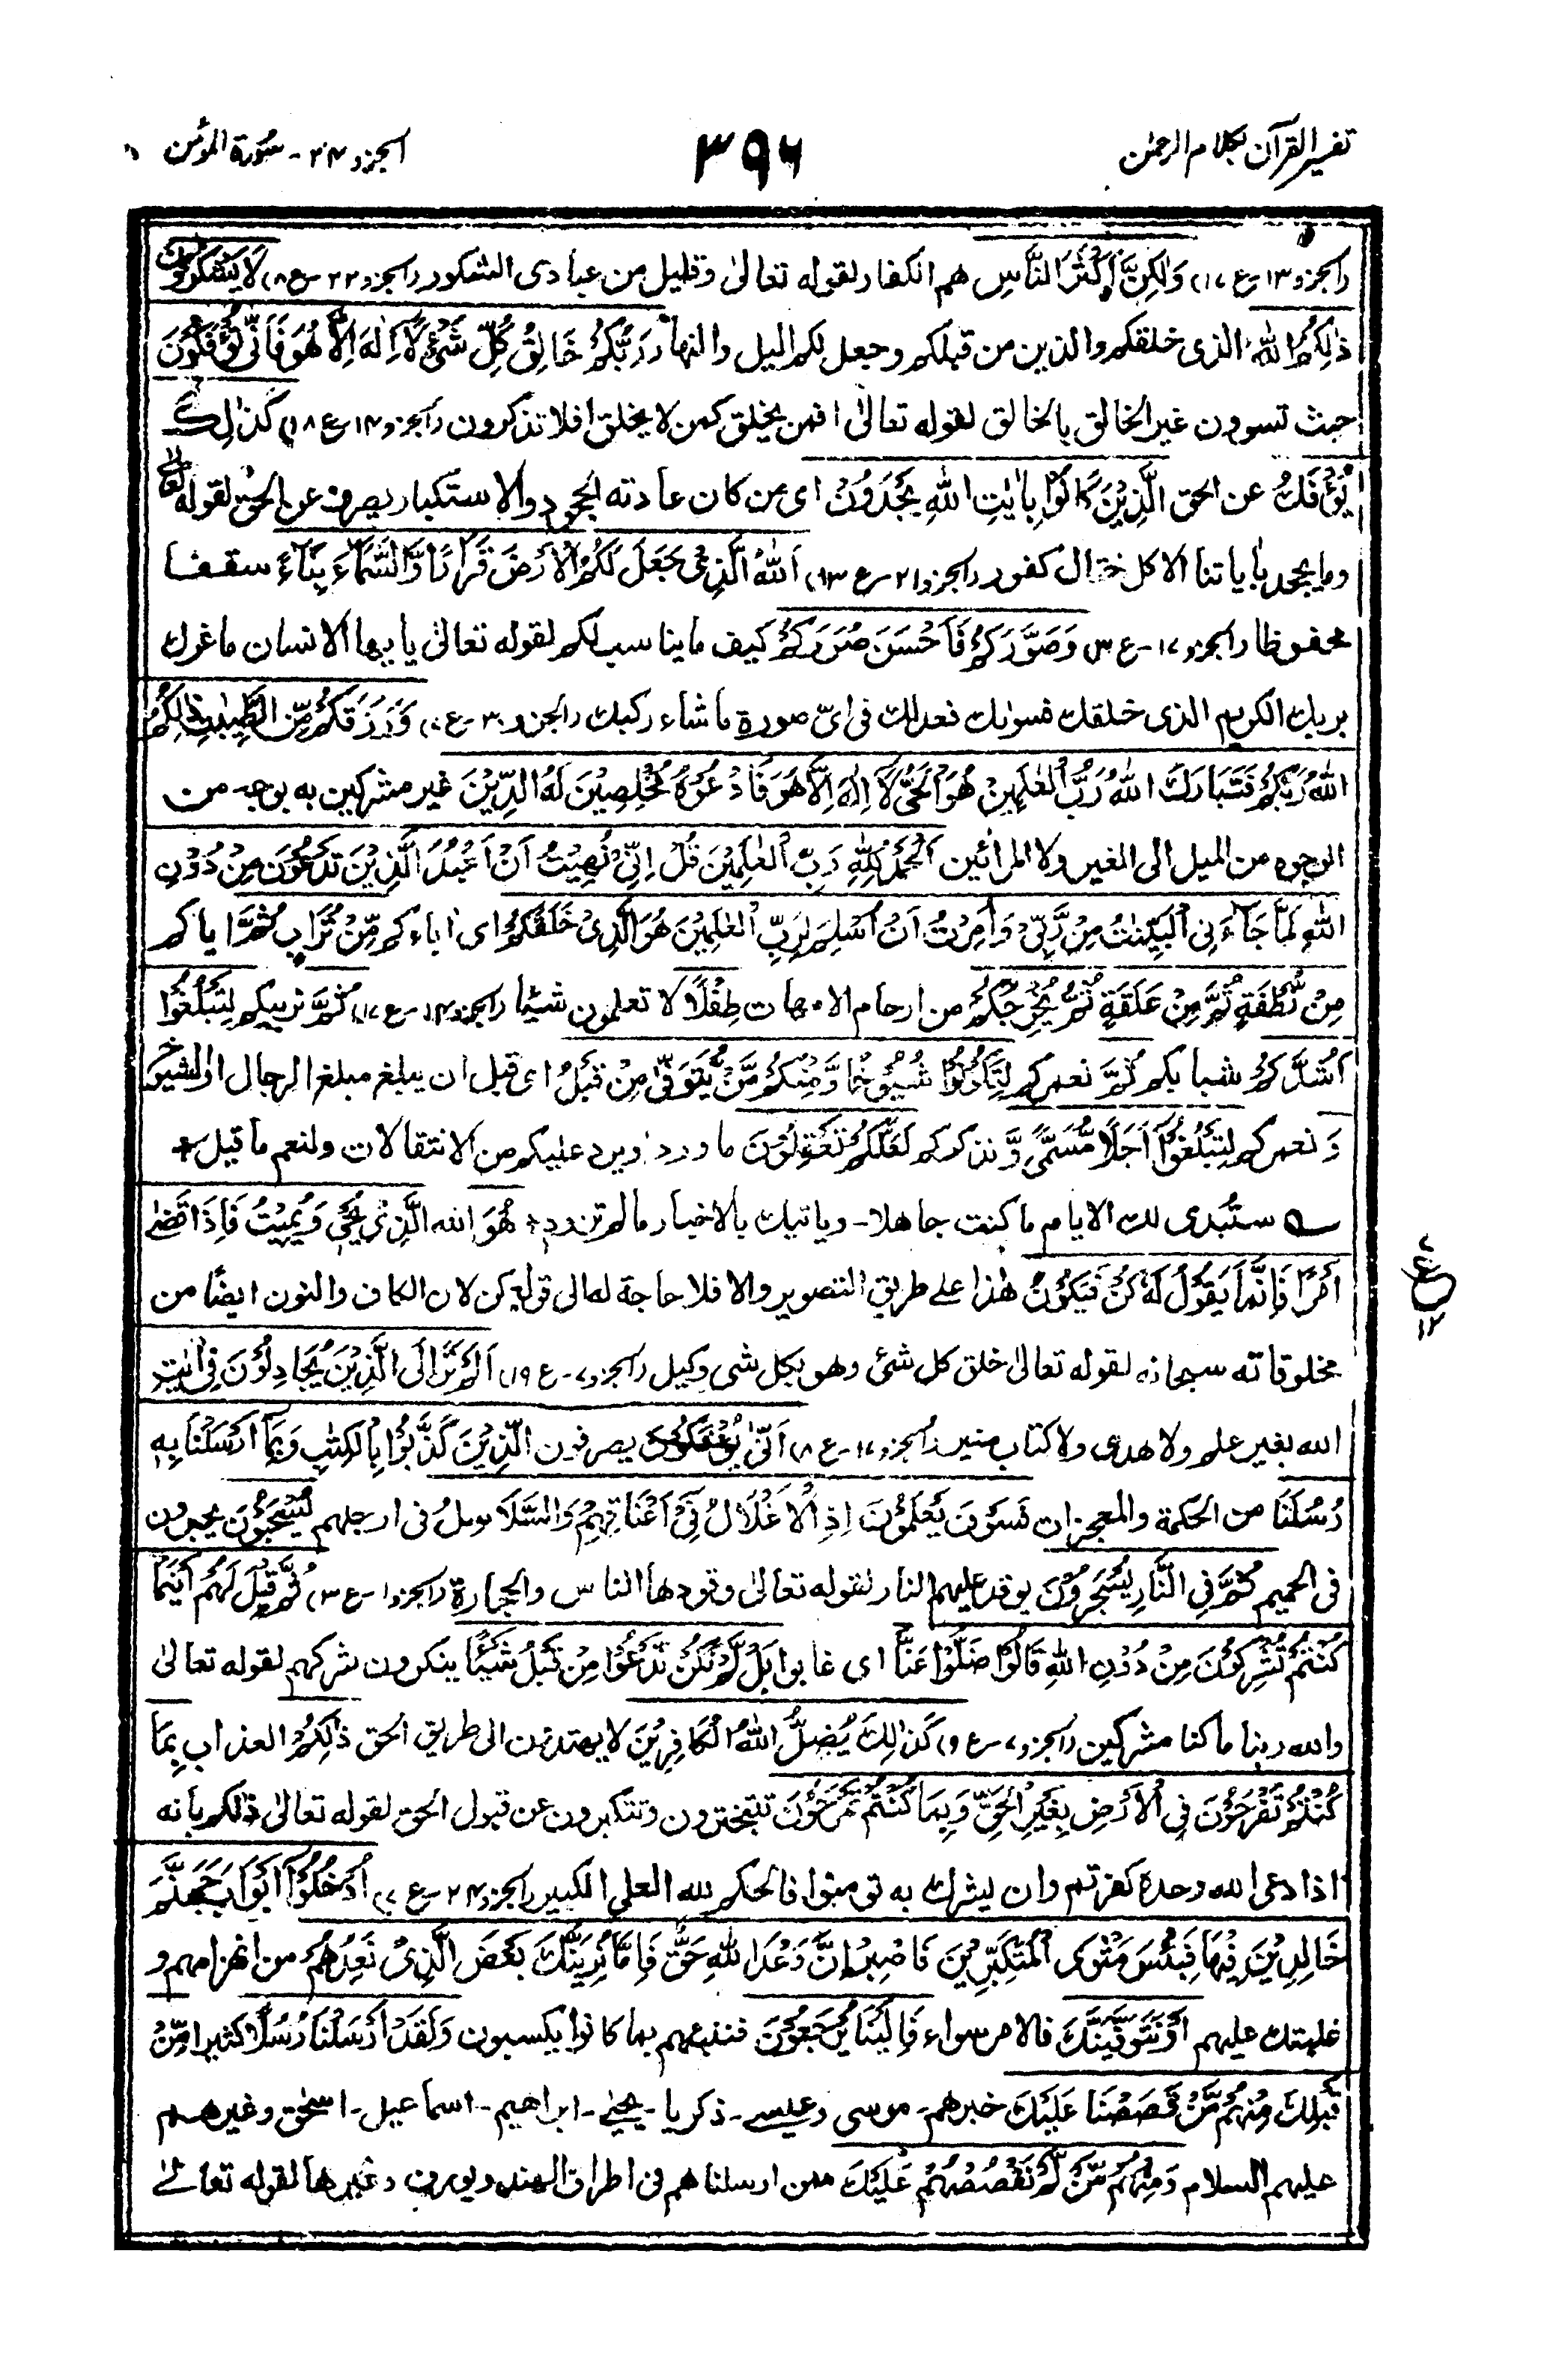 تفسير القرآن بكلام الرحمٰن
٣٩٦
الجزو ٢٤ - سورة المؤمن
(الجزو ١٣ - ع ١٧) وَلٰكِنَّ اَكْثَرَ النَّاسِ هم الكفار لقوله تعالىٰ وقليل من عبادى الشكور (الجزو ٢٢ - ع ٨) لَا يَشْكُرُوْنَ
ذٰلِكُمُ اللّٰهُ الذى خلقكم والذين من قبلكم وجعل لكم اليل والنهار رَبُّكُمْ خَالِقُ كُلِّ شَىْءٍ لَآ اِلٰهَ اِلَّا هُوَ فَاَنّٰى تُؤْفَكُوْنَ
حيث تسوون غير الخالق بالخالق لقوله تعالىٰ افمن يخلق كمن لا يخلق افلا تذكرون (الجزو ١٤ - ع ٨) كَذٰلِكَ
يُؤْفَكُ عن الحق الَّذِيْنَ كَانُوْا بِاٰيٰتِ اللّٰهِ يَجْحَدُوْنَ اى من كان عادته الجحود والاستكبار يصرف عن الحق لقوله تعالىٰ
وما يجحد باياتنا الا كل ختال كفور (الجزو ٢١ - ع ١٣) اَللّٰهُ الَّذِىْ جَعَلَ لَكُمُ الْاَرْضَ قَرَارًا وَّالسَّمَآءَ بِنَآءً سقفا
محفوظا (الجزو ١٧ - ع ٣) وَصَوَّرَكُمْ فَاَحْسَنَ صُوَرَكُمْ كيف ما يناسب لكم لقوله تعالىٰ يا ايها الانسان ما غرك
بربك الكريم الذى خلقك فسوٰىك فعدلك فى اىّ صورة ما شاء ركبك (الجزو ٣٠ - ع ٧) وَرَزَقَكُمْ مِّنَ الطَّيِّبٰتِ ذٰلِكُمُ
اللّٰهُ رَبُّكُمْ فَتَبَارَكَ اللّٰهُ رَبُّ الْعٰلَمِيْنَ هُوَ الْحَىُّ لَآ اِلٰهَ اِلَّا هُوَ فَادْعُوْهُ مُخْلِصِيْنَ لَهُ الدِّيْنَ غير مشركين به بوجه من
الوجوه من الميل الى الغير ولا المرائين اَلْحَمْدُ لِلّٰهِ رَبِّ الْعٰلَمِيْنَ قُلْ اِنِّىْ نُهِيْتُ اَنْ اَعْبُدَ الَّذِيْنَ تَدْعُوْنَ مِنْ دُوْنِ
اللّٰهِ لَمَّا جَآءَنِىَ الْبَيِّنٰتُ مِنْ رَّبِّىْ وَاُمِرْتُ اَنْ اُسْلِمَ لِرَبِّ الْعٰلَمِيْنَ هُوَ الَّذِىْ خَلَقَكُمْ اى اٰباءكم مِّنْ تُرَابٍ ثُمَّ اياكم
مِنْ نُّطْفَةٍ ثُمَّ مِنْ عَلَقَةٍ ثُمَّ يُخْرِجُكُمْ من ارحام الامهات طِفْلًا لا تعلمون شيئا (الجزو ١٤ - ع ١٧) ثُمَّ نربيكم لِتَبْلُغُوْٓا
اَشُدَّكُمْ شبابكم ثُمَّ نعمركم لِتَكُوْنُوْا شُيُوْخًا وَّمِنْكُمْ مَّنْ يُّتَوَفّٰى مِنْ قَبْلُ اى قبل ان يبلغ مبلغ الرجال او الشيوخ
وَ نعمركم لِتَبْلُغُوْٓا اَجَلًا مُّسَمًّى وَّ نذكركم لَعَلَّكُمْ تَعْقِلُوْنَ ما ورد ويرد عليكم من الانتقالات ولنعم ما قيل
ستبدى لك الايام ما كنت جاهلا - وياتيك بالاخبار ما لم تزود هُوَ الله الَّذِىْ يُحْىٖ وَيُمِيْتُ فَاِذَا قَضٰٓى
اَمْرًا فَاِنَّمَا يَقُوْلُ لَهٗ كُنْ فَيَكُوْنُ هٰذا علے طريق التصوير والا فلا حاجة له الى قوله كن لان الكاف والنون ايضًا من
مخلوقاته سبحانه لقوله تعالىٰ خلق كل شئ وهو بكل شى وكيل (الجزو ٧ - ع ١٩) اَلَمْ تَرَ اِلَى الَّذِيْنَ يُجَادِلُوْنَ فِىْٓ اٰيٰتِ
الله بغير علم ولا هدى ولا كتاب منير (الجزو ١٧ - ع ٨) اَنّٰى يصرفون الَّذِيْنَ كَذَّبُوْا بِالْكِتٰبِ وَبِمَآ اَرْسَلْنَا بِهٖ
رُسُلَنَا من الحكمة والمعجزات فَسَوْفَ يَعْلَمُوْنَ اِذِ الْاَغْلَالُ فِىْٓ اَعْنَاقِهِمْ وَالسَّلَاسِلُ فى ارجلهم يُسْحَبُوْنَ يجرون
فى الحميم ثُمَّ فِى النَّارِ يُسْجَرُوْنَ يوقد عليهم النار لقوله تعالىٰ وقودها الناس والحجارة (الجزو ١ - ع ٣) ثُمَّ قِيْلَ لَهُمْ اَيْنَمَا
كُنْتُمْ تُشْرِكُوْنَ مِنْ دُوْنِ اللّٰهِ قَالُوْا ضَلُّوْا عَنَّا اى غابوا بَلْ لَّمْ نَكُنْ نَّدْعُوْا مِنْ قَبْلُ شَيْئًا ينكرون شركهم لقوله تعالىٰ
والله ربنا ما كنا مشركين (الجزو ٧ - ع ٩) كَذٰلِكَ يُضِلُّ اللّٰهُ الْكَافِرِيْنَ لا يهتدون الى طريق الحق ذٰلِكُمْ العذاب بِمَا
كُنْتُمْ تَفْرَحُوْنَ فِى الْاَرْضِ بِغَيْرِ الْحَقِّ وَبِمَا كُنْتُمْ تَمْرَحُوْنَ تتبخترون وتتكبرون عن قبول الحق لقوله تعالىٰ ذلكم بأنه
اذا دعى الله وحده كفرتم وان يشرك به تومنوا فالحكم لله العلى الكبير (الجزو ٢٤ - ع ٧) اُدْخُلُوْٓا اَبْوَابَ جَهَنَّمَ
خَالِدِيْنَ فِيْهَا فَبِئْسَ مَثْوَى الْمُتَكَبِّرِيْنَ فَاصْبِرْ اِنَّ وَعْدَ اللّٰهِ حَقٌّ فَاِمَّا نُرِيَنَّكَ بَعْضَ الَّذِىْ نَعِدُهُمْ من انهزامهم و
غلبتك عليهم اَوْ نَتَوَفَّيَنَّكَ فالامر سواء فَاِلَيْنَا يُرْجَعُوْنَ فننبئهم بما كانوا يكسبون وَلَقَدْ اَرْسَلْنَا رُسُلًا كثيرا مِّنْ
قَبْلِكَ مِنْهُمْ مَّنْ قَصَصْنَا عَلَيْكَ خبرهم - موسى وعيسے - ذكريا - يحيٰے - ابراهيم - اسماعيل - اسحٰق وغيرهم
عليهم السلام وَمِنْهُمْ مَّنْ لَّمْ نَقْصُصْهُمْ عَلَيْكَ ممن ارسلناهم فى اطراف الهند ويورپ وغيرها لقوله تعالےٰ
ع
١٢